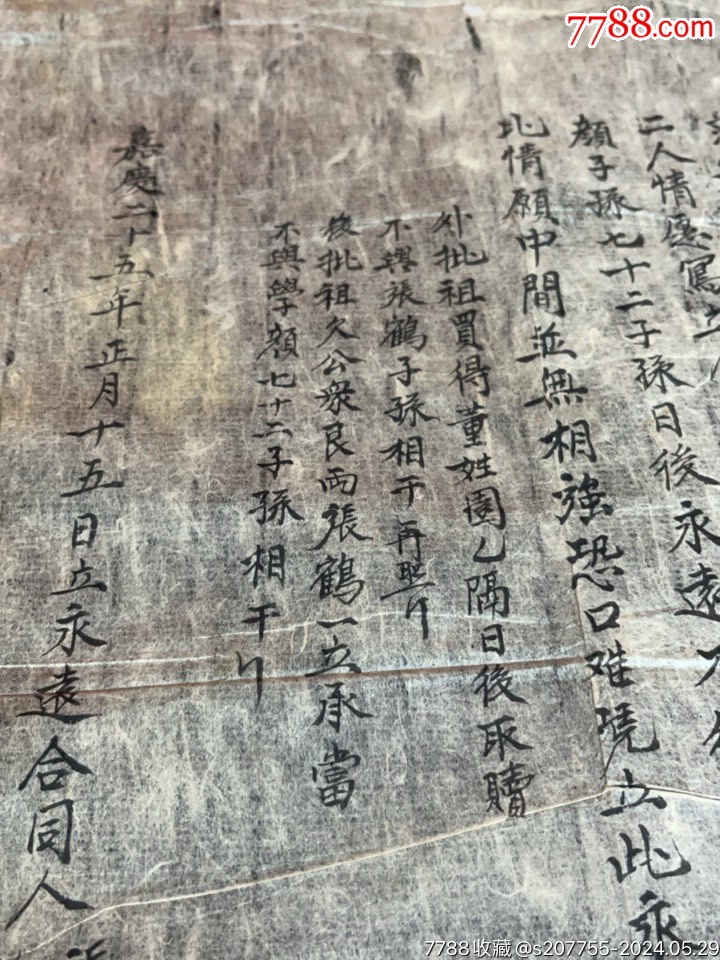 二人情愿寫立
顏子孫七十二子孫日後永遠不
此情願中間並無相強恐口难凴立此永
外批祖買得董姓園乙隔日後取贖
不與張鶴子孫相干再照
後批祖欠公衆艮兩張鶴一立承當
不與學顏七十二子孫相干
嘉慶二十五年正月十五日立永遠合同人
7788.com
7788收藏@s207755-2024.05.29